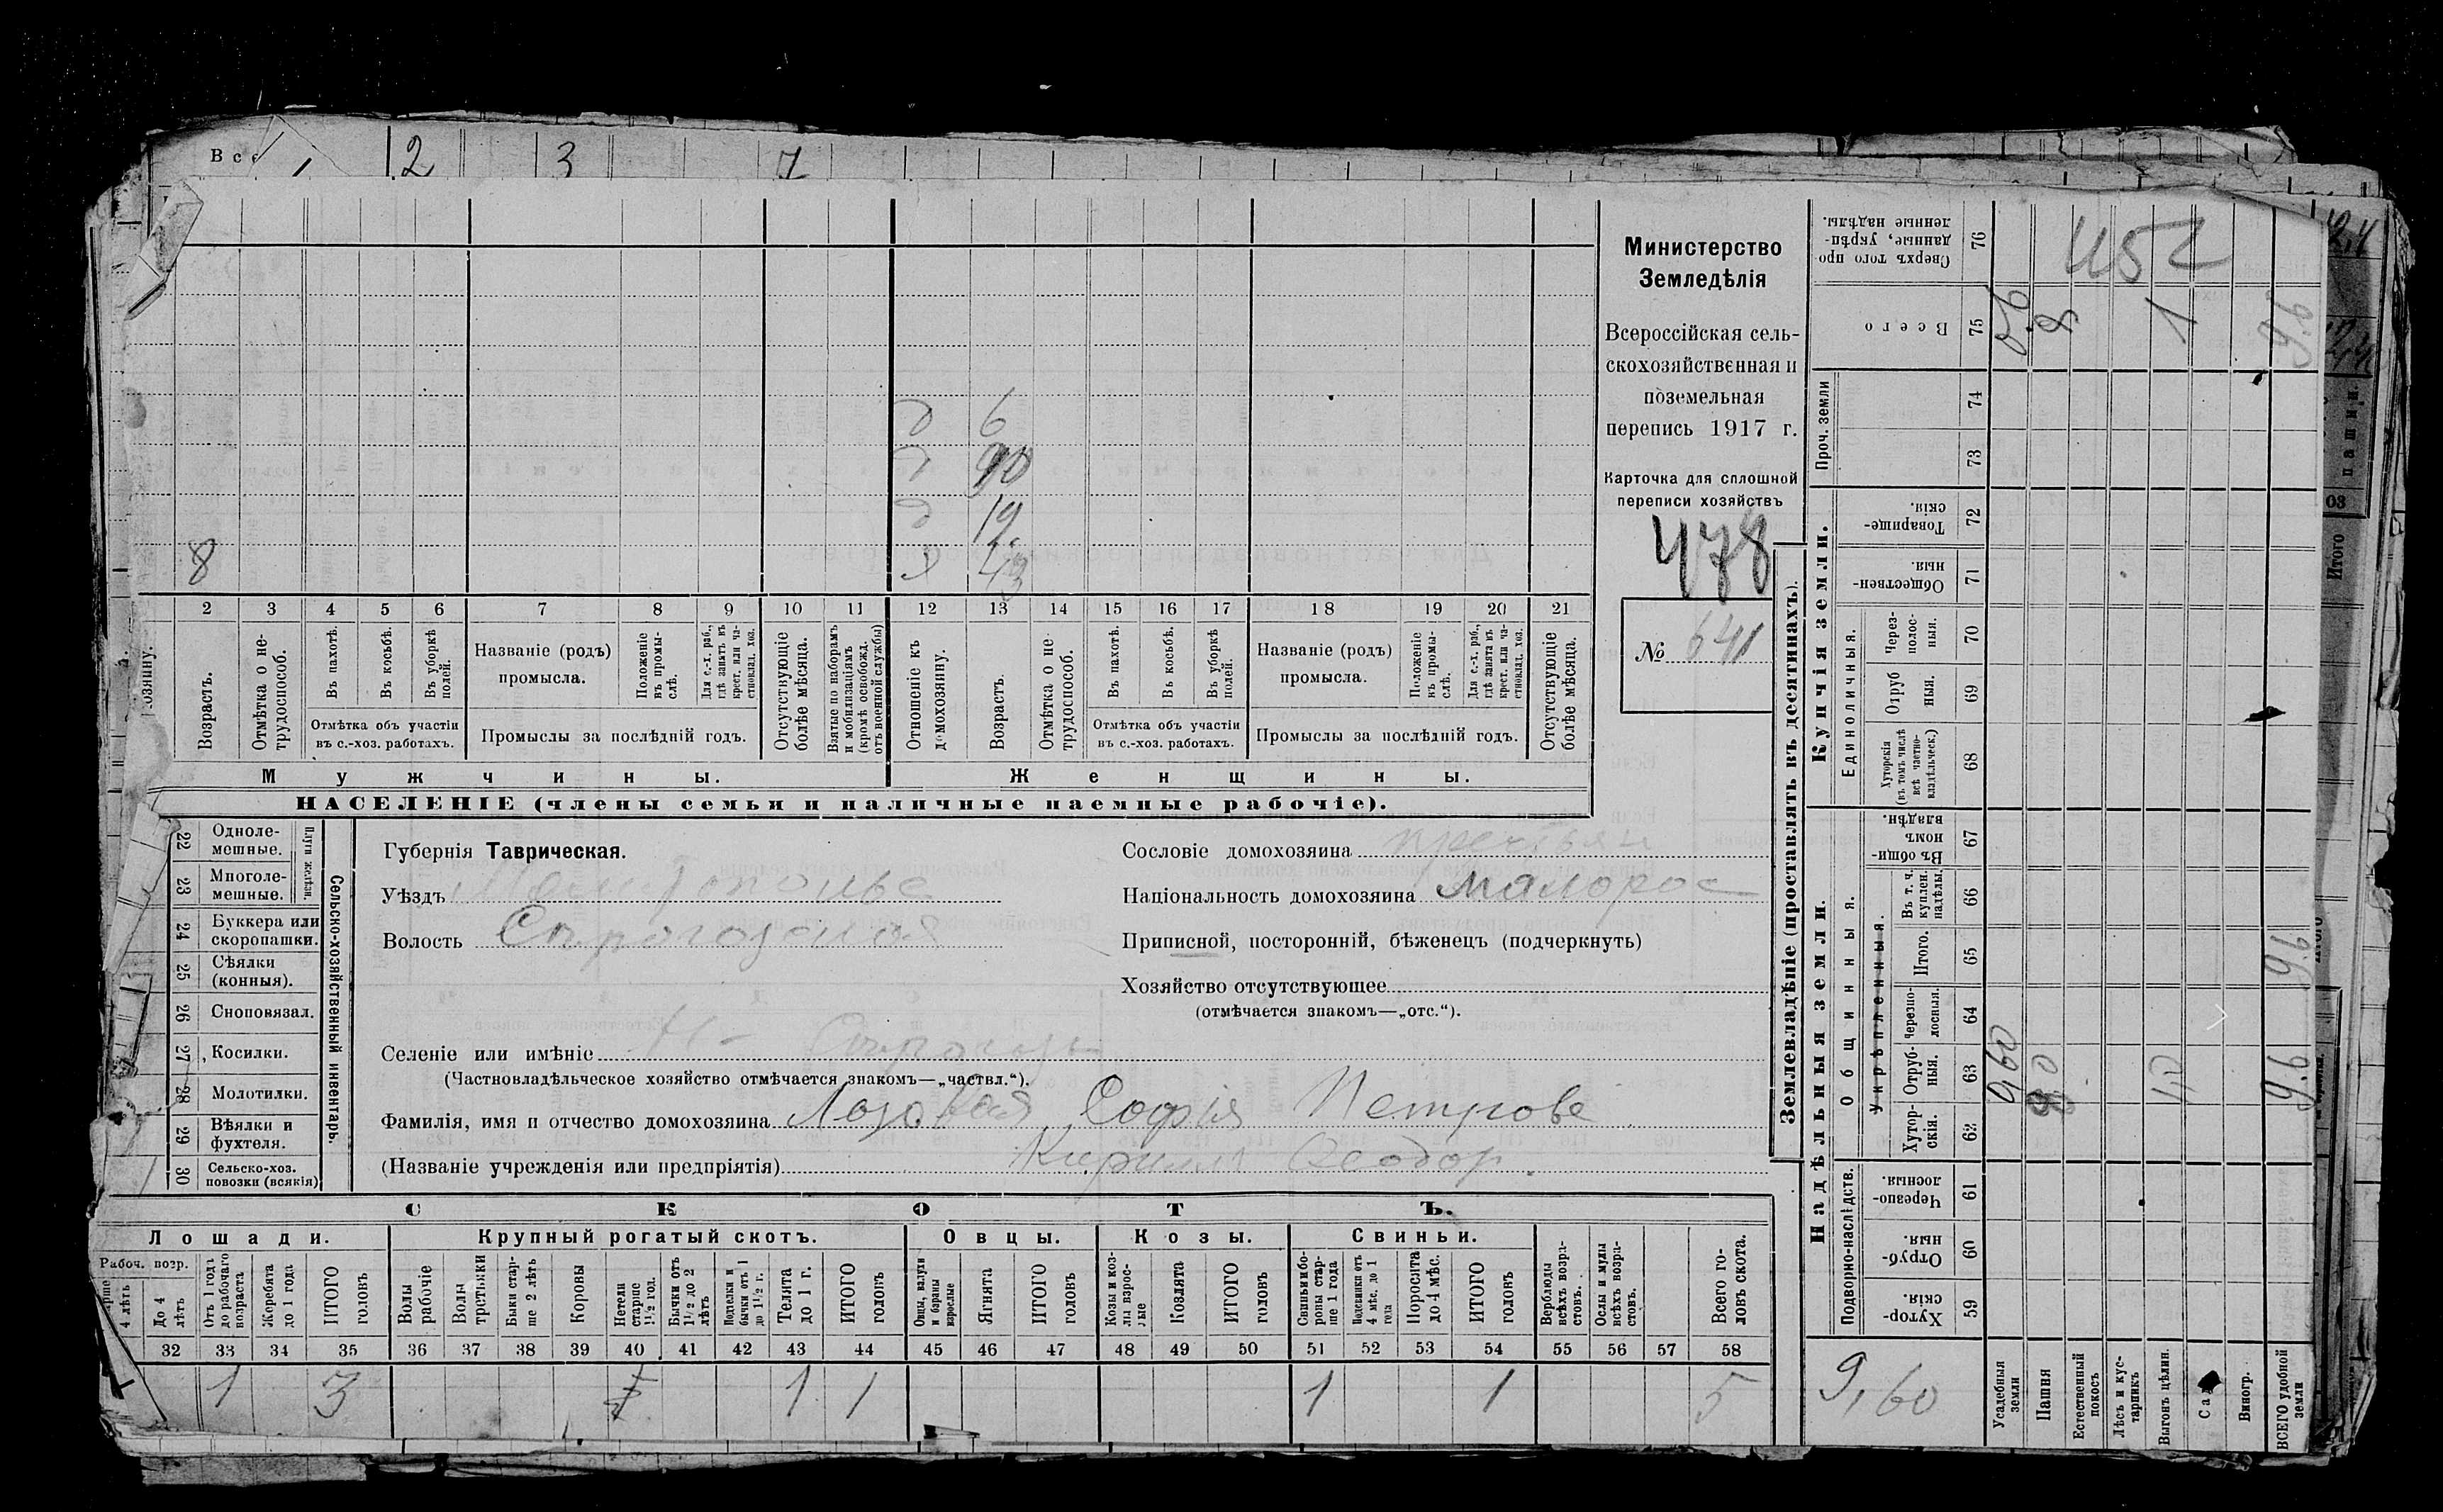 2 3 7
8
6
90
19
43
2 3 4 5 6 7 8 9 10 11 12 13 14 15 16 17 18 19 20 21
Возрастъ.
Отмѣтка о не-
трудоспособ.
Въ пахотѣ.
Въ косьбѣ.
Въ уборкѣ
полей.
Отмѣтка объ участіи
въ с.-хоз. работахъ.
Названіе (родъ)
промысла.
Положеніе
въ промы-
слѣ.
Для с.-х. раб.,
гдѣ занятъ въ
крест. или ча-
стновлад. хоз.
Промыслы за послѣдній годъ.
Отсутствующіе
болѣе мѣсяца.
Взятые по наборамъ
и мобилизаціямъ
(кромѣ освобожд.
отъ военной службы)
Отношеніе къ
домохозяину.
Возрастъ.
Отмѣтка о не
трудоспособ.
Въ пахотѣ.
Въ косьбѣ.
Въ уборкѣ
полей.
Отмѣтка объ участіи
въ с.-хоз. работахъ.
Названіе (родъ)
промысла.
Положеніе
въ промы-
слѣ.
Для с.-х. раб.,
гдѣ занята въ
крест. или ча-
стновлад. хоз.
Промыслы за послѣдній годъ.
Отсутствующіе
болѣе мѣсяца.
Мужчины.
Женщины.
НАСЕЛЕНІЕ (члены семьи и наличные наемные рабочіе).
Министерство
Земледѣлія
Всероссійская сель-
скохозяйственная и
поземельная
перепись 1917 г.
Карточка для сплошной
переписи хозяйствъ
478
№ 641
22 Одноле-
мешные.
23 Многоле-
мешные.
Плуги желѣзн.
24 Буккера или
скоропашки.
25 Сѣялки
(конныя).
26 Сноповязал.
27 Косилки.
28 Молотилки.
29 Вѣялки и
фухтеля.
30 Сельско-хоз.
повозки (всякія)
Сельско-хозяйственный инвентарь.
Губернія Таврическая.
Уѣздъ
Волость
Селеніе или имѣніе
(Частновладѣльческое хозяйство отмѣчается знакомъ—„частвл.“).
Фамилія, имя и отчество домохозяина Лозовая Софія Петрове
(Названіе учрежденія или предпріятія) Кирилл Феодор.
Сословіе домохозяина
Національность домохозяина малорос
Приписной, посторонній, бѣженецъ (подчеркнуть)
Хозяйство отсутствующее
(отмѣчается знакомъ—„отс.“).
СКОТЪ.
Лошади.
Крупный рогатый скотъ.
Овцы.
Козы.
Свиньи.
Рабоч. возр.
4 лѣтъ
До 4
лѣтъ
Отъ 1 года
до рабочаго
возраста
Жеребята
до 1 года
ИТОГО
головъ
Волы
рабочіе
Волы
третьяки
Быки стар-
ше 2 лѣтъ
Коровы
Нетели
старше
1½ год.
Бычки отъ
1½ до 2
лѣтъ
Подтелки и
бычки отъ 1
до 1½ г.
Телята
до 1 г.
ИТОГО
головъ
Овцы, валухи
и бараны
взрослые
Ягнята
ИТОГО
головъ
Козы и коз-
лы взрос-
лые
Козлята
ИТОГО
головъ
Свиньи и бо-
ровы стар-
ше 1 года
Подсвинки отъ
4 мѣс. до 1
года
Поросята
до 4 мѣс.
ИТОГО
головъ
Верблюды
всѣхъ возра-
стовъ.
Ослы и мулы
всѣхъ возра-
стовъ.
Всего го-
ловъ скота.
32 33 34 35 36 37 38 39 40 41 42 43 44 45 46 47 48 49 50 51 52 53 54 55 56 57 58
1 3 1 1 1 1 5
Землевладѣніе (проставлять въ десятинахъ).
Купчія земли.
Надѣльныя земли.
Сверхъ того про
данные, укрѣп-
ленные надѣлы.
76
452
Всего
75
8 1 9.6
Проч. земли
74
73
Товарище-
скія.
72
Обществен-
ныя.
71
Единоличныя.
Через-
полос-
ныя.
70
Отруб
ныя.
69
Хуторскія
(въ томъ числѣ
всѣ частно-
владѣльческ.)
68
Общинныя.
Въ общи-
номъ
владѣн.
67
Укрѣпленныя.
Въ т. ч.
куплен.
надѣлы.
66
Итого.
65
9.6
Черезпо-
лосныя.
64
Отруб-
ныя.
63
9,60 8,0 1,0 9.6
Хутор-
скія.
62
Подворно-наслѣдств.
Черезпо-
лосныя.
61
Отруб-
ныя.
60
Хутор-
скія.
59
9,60
Усадебныя
земли
Пашня
Естественный
покосъ
Лѣсъ и кус-
тарникъ
Выгонъ цѣлин.
Виногр.
ВСЕГО удобной
земли
03
Итого
пашни.